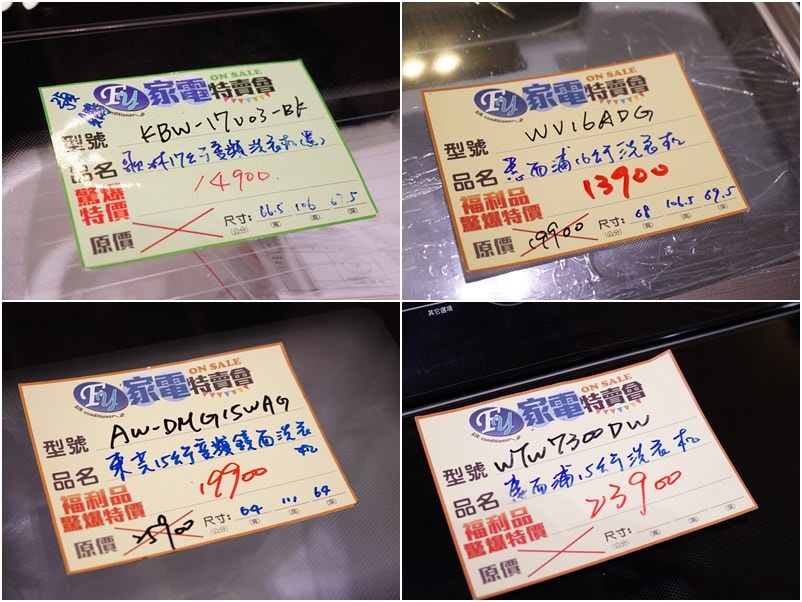 Fy 家電特賣會 ON SALE
型號 KBW-17V03-BK
品名 17公斤變頻洗衣机(黑)
驚爆特價 14900
原價
尺寸:(公分) 66.5(寬) 106(高) 67.5(深)
Fy 家電特賣會 ON SALE
AIR conditioner
型號 WV16ADG
品名 惠而浦16公斤洗衣机
福利品驚爆特價 13900
原價 19900
尺寸:(公分) 68(寬) 106.5(高) 69.5(深)
Fy 家電特賣會 ON SALE
AIR conditioner
型號 AW-DMG15WAG
品名 東芝15公斤變頻鏡面洗衣机
福利品驚爆特價 19900
原價 25900
尺寸:(公分) 64(寬) 111(高) 64(深)
其它選項
Fy 家電特賣會 ON SALE
AIR conditioner
型號 WTW7300DW
品名 惠而浦15公斤洗衣机
福利品驚爆特價 23900
原價
尺寸:(公分) (寬) (高) (深)